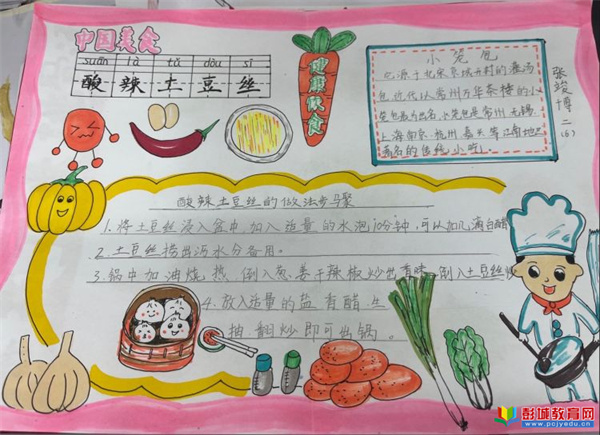 中国美食
suān là tǔ dòu sī
酸辣土豆丝
健康饮食
小笼包
源于北宋京城开封的灌汤
包,近代以常州万华茶楼的小
笼包最为出名,小笼包是常州、无锡、
上海、南京、杭州、嘉兴等江南地区
著名的传统小吃。
张竣博 二(6)
酸辣土豆丝的做法步骤
1.将土豆丝浸入盆中,加入适量的水泡10分钟,可以加几滴白醋
2.土豆丝捞出沥水分备用。
3.锅中加油烧热,倒入葱、姜、干辣椒炒出香味,倒入土豆丝炒
4.放入适量的盐香醋
翻炒即可出锅。
彭城教育网
www.pcjyedu.cn